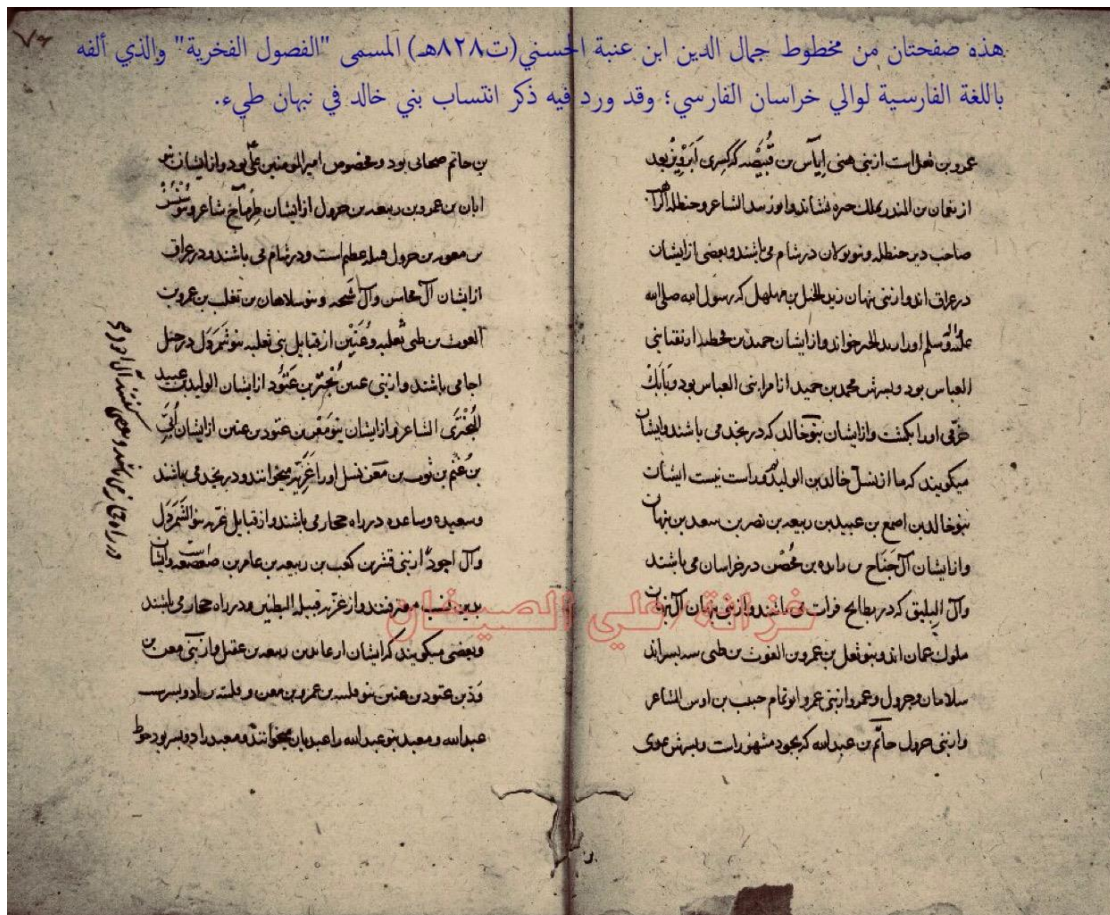 هذه صفحتان من مخطوط جمال الدين ابن عنبة الحسني(ت٨٢٨هـ) المسمى "الفصول الفخرية" والذي ألفه
باللغة الفارسية لوالي خراسان الفارسي؛ وقد ورد فيه ذكر انتساب بني خالد في نبهان طيء.
٧٤
عمرو بن ثعل است از بنی هنی ایاس بن قبیصه که کسری ابرویز بعد
از نعمان بن المنذر بملک حیره نشاند و ابو زبید الشاعر و حنظله
صاحب دیر حنظله و بنو بولان در شام می باشند و بعضی از ایشان
در عراق اند و از بنی نبهان زید الخیل بن مهلهل که رسول الله صلی الله
علیه و آله و سلم او را زید الخیر خواند و از ایشان حمید بن قحطبه از نقبا بنی
العباس بود و پسرش محمد بن حمید از امرا بنی العباس بود و بابک
خرمی او را بکشت و از ایشان بنو خالد که در نجد می باشند و ایشان
میگویند که ما از نسل خالد بن الولید و راست نیست ایشان
بنو خالد بن اصمع بن عبید بن ربیعه بن نصر بن سعد بن نبهان
و از ایشان آل جناح بن محصن در خراسان می باشند
و آل البلیق که در بطایح فرات می باشند و از بنی نبهان آل نبهان
ملوک عمان اند و بنو ثعل بن عمرو بن الغوث بن طی سه پسر اند
سلامان و جرول و عمرو از بنی عمرو ابو تمام حبیب بن اوس الشاعر
و از بنی جرول حاتم بن عبد الله که بجود مشهور است و پسرش عدی
بن حاتم صحابی بود و مخصوص امیر المومنین علی بود و از ایشان بنو
ابان بن عمرو بن ربیعه بن جرول از ایشان طرماح شاعر و بنو سنبس
بن معویه بن جرول قبیله عظیم است و در شام می باشند و در عراق
از ایشان آل محاسن و آل شحمه و بنو سلامان بن ثعل بن عمرو بن
الغوث بن طی ثعلبه و عنین از قبایل بنی ثعلبه بنو شمردل در جبل
اجا می باشند و از بنی عنین بحتر بن عتود از ایشان الولید بن عبید
البحتری الشاعر و از ایشان بنو معن بن عتود بن عنین از ایشان
بن غنم بن ثوب بن معن نسل او را غزیه میخوانند و در نجد می باشند
و سعیده و ساعده در راه حجاز می باشند و از قبایل غزیه بنو الشمردل
و آل اجود از بنی قشیر بن کعب بن ربیعه بن عامر بن صعصعه است و ایشان
بدین نسب معترفند و از غزیه قبیله البطنین در راه حجاز می باشند
و بعضی میگویند که ایشان از عامر بن ربیعه بن عقیل و از بنی معن بن
عتود بن عنین بنو فلسه بن عمرو بن معن و فلسه را دو پسرست
عبد الله و معبد بنو عبد الله را عبدیان میخوانند و معبد را دو پسر بود
در راه حجاز می باشند و بعضی گفتند آل اجود
خزانة/علي الصيخان